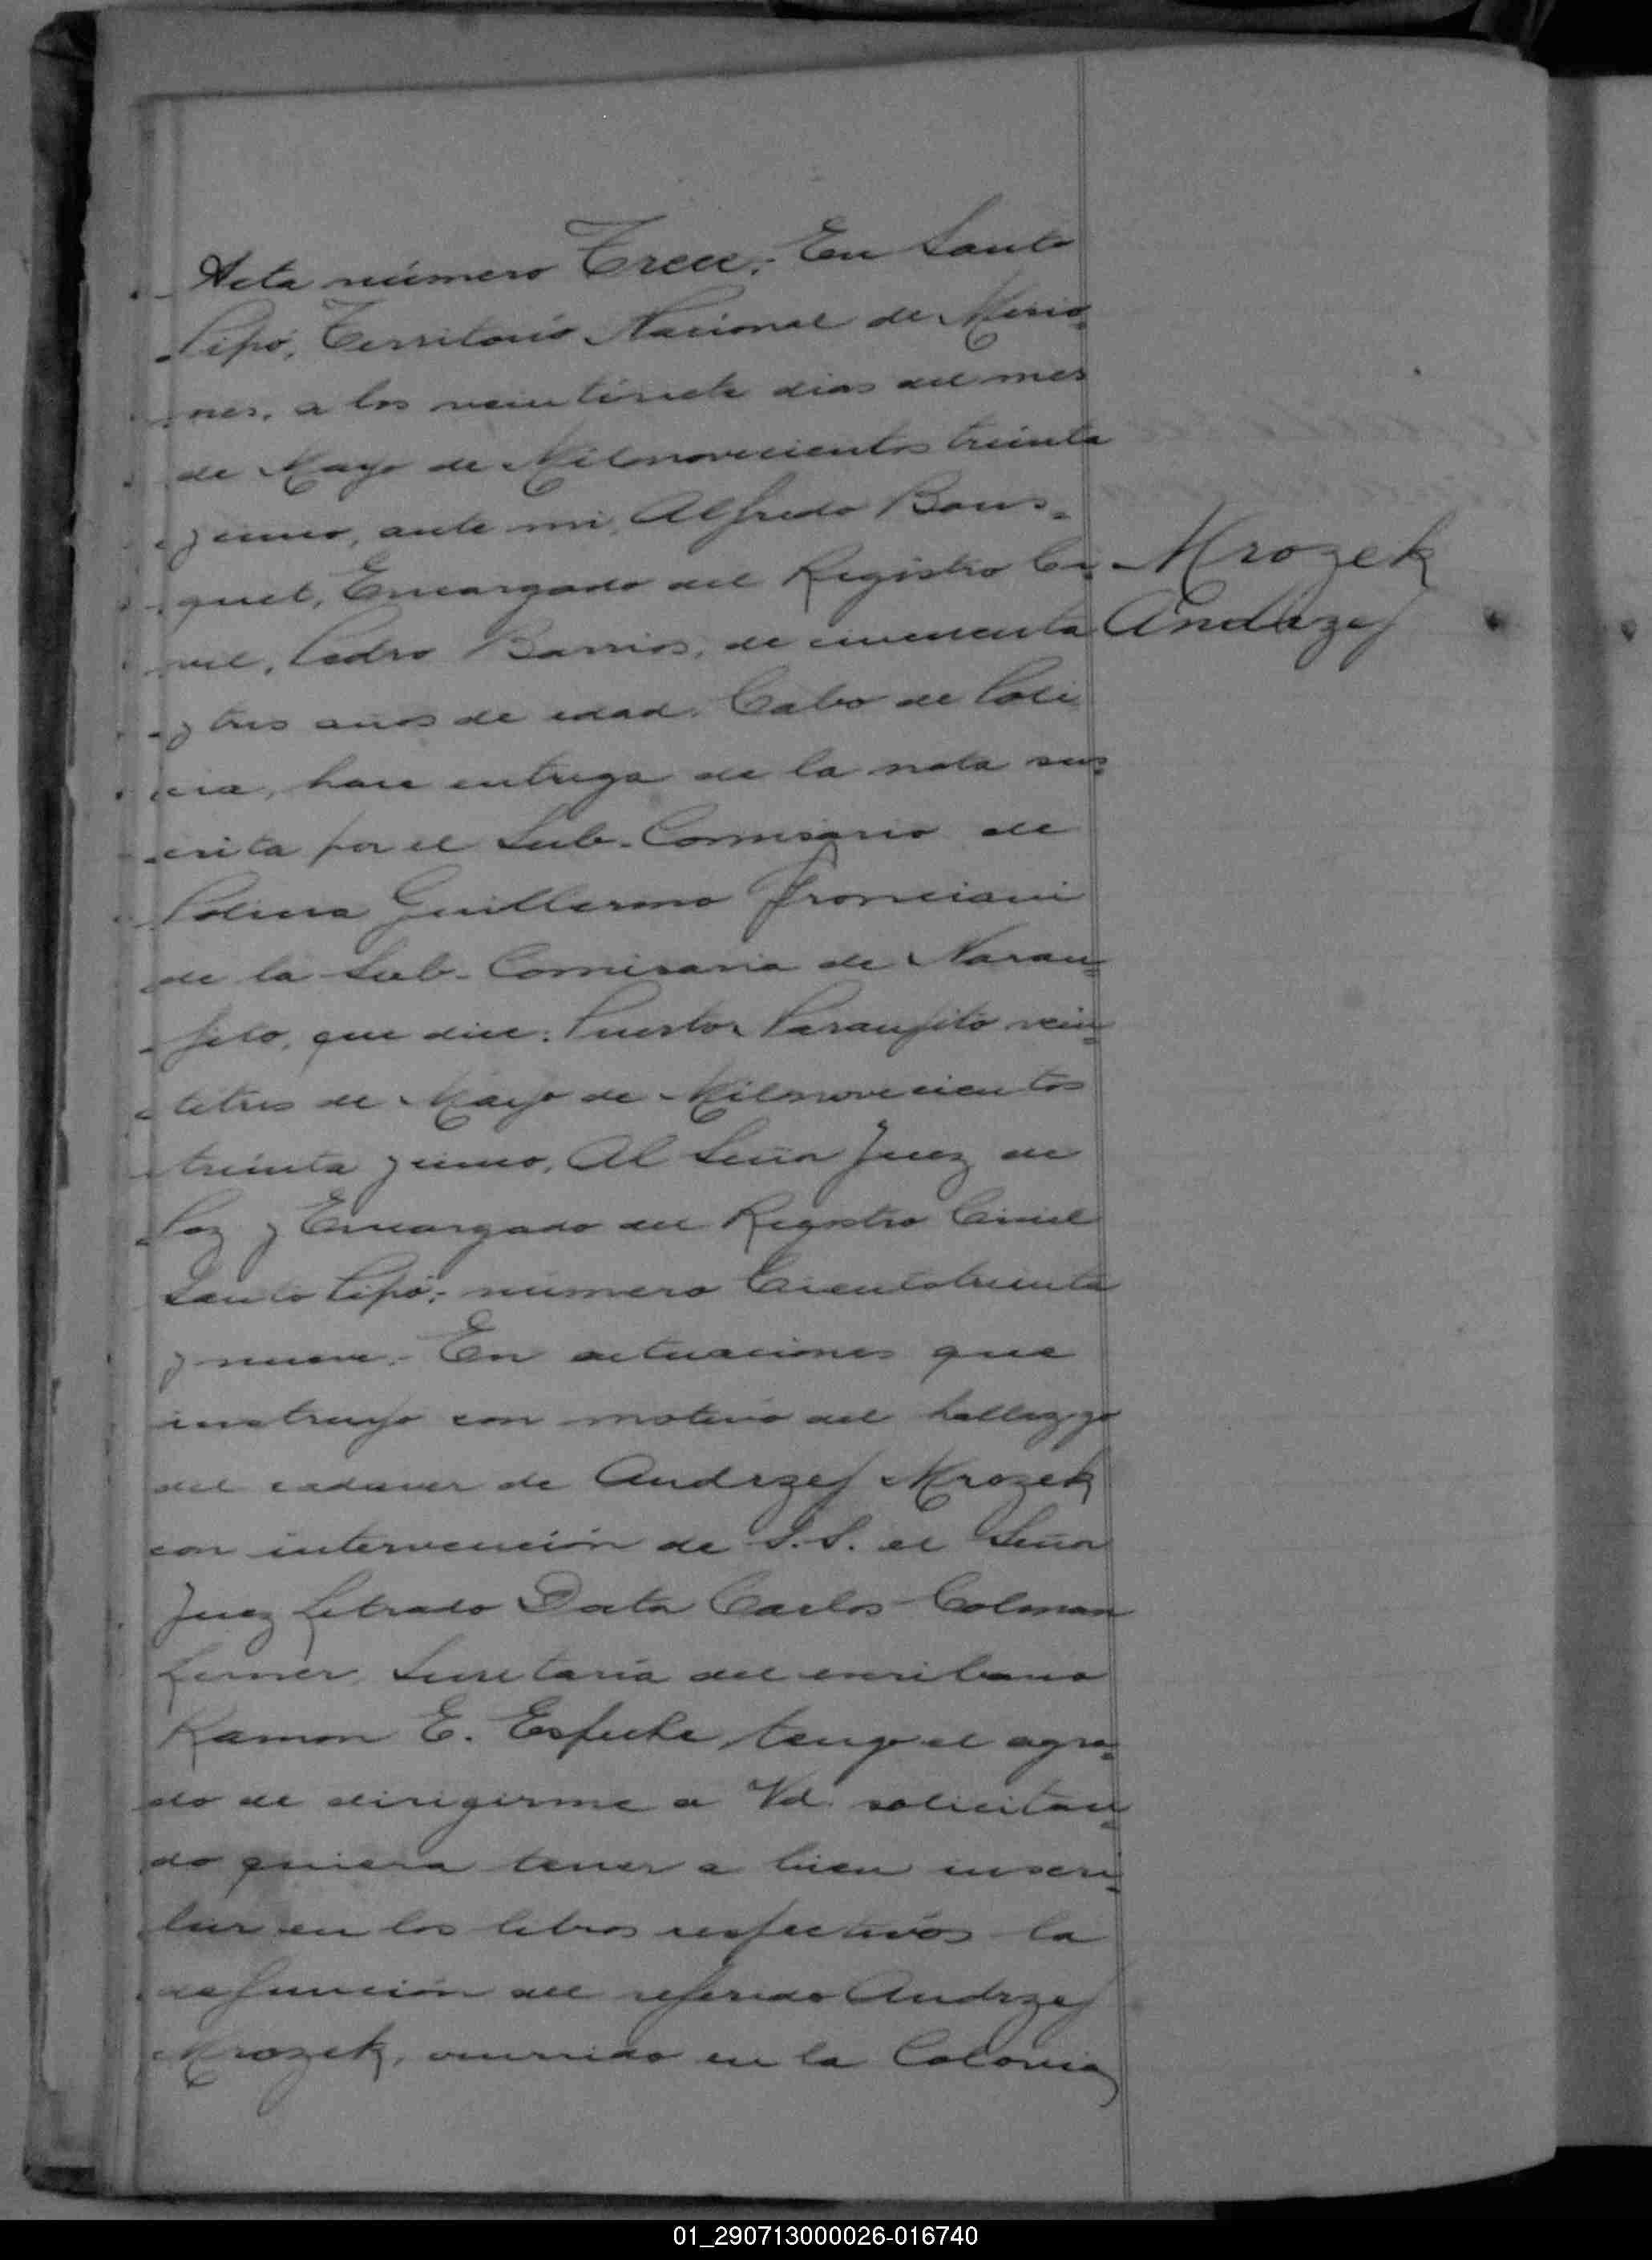 Acta número Trece.- En Santo
Pipó, Territorio Nacional de Misio=
nes, a los veintisiete dias del mes
de Mayo de Milnovecientos treinta
y cinco, ante mi, Alfredo Bous=
quet, Encargado del Registro Ci=
vil, Pedro Barrios, de cincuenta
y tres años de edad, Cabo de Poli
cia, hace entrega de la nota sus=
crita por el Sub-Comisario de
Policia Guillermo Fronciani
de la Sub-Comisaria de Naran=
jito, que dice: Puerto Naranjito vein=
titres de Mayo de Milnovecientos
treinta y cinco, Al Señor Juez de
Paz y Encargado del Registro Civil
Santo Pipó:- número Cientotreinta
y nueve.- En actuaciones que
instruyo con motivo del hallazgo
del cadaver de Andrzej Mrozek
con intervención de S.S. el Señor
Juez Letrado Doctor Carlos Colman
Lerner, Secretaría del escribano
Ramon E. Espeche, tengo el agra=
do de dirigirme a Vd. solicitan=
do quiera tener a bien inscri=
bir en los libros respectivos la
defunción del referido Andrzej
Mrozek, ocurrido en la Colonia
Mrozek
Andrzej
01_290713000026-016740